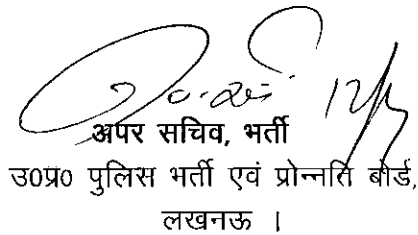 अपर सचिव, भर्ती
उ0प्र0 पुलिस भर्ती एवं प्रोन्नति बोर्ड,
लखनऊ ।